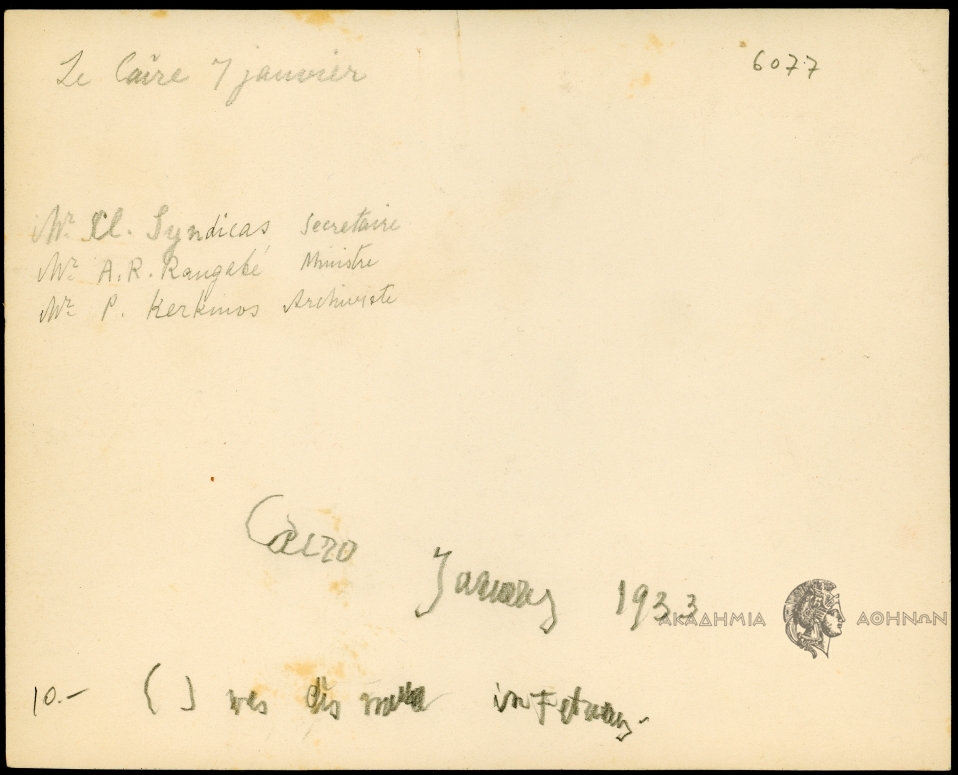 Le Caire 7 janvier
6077
Mr. Cl. Syndicas Secretaire
Mr. A. R. Rangabé Ministre
Mr. P. Kerkinos Archiviste
Cairo January 1933
ΑΚΑΔΗΜΙΑ ΑΘΗΝΩΝ
10.- ( ) was in February